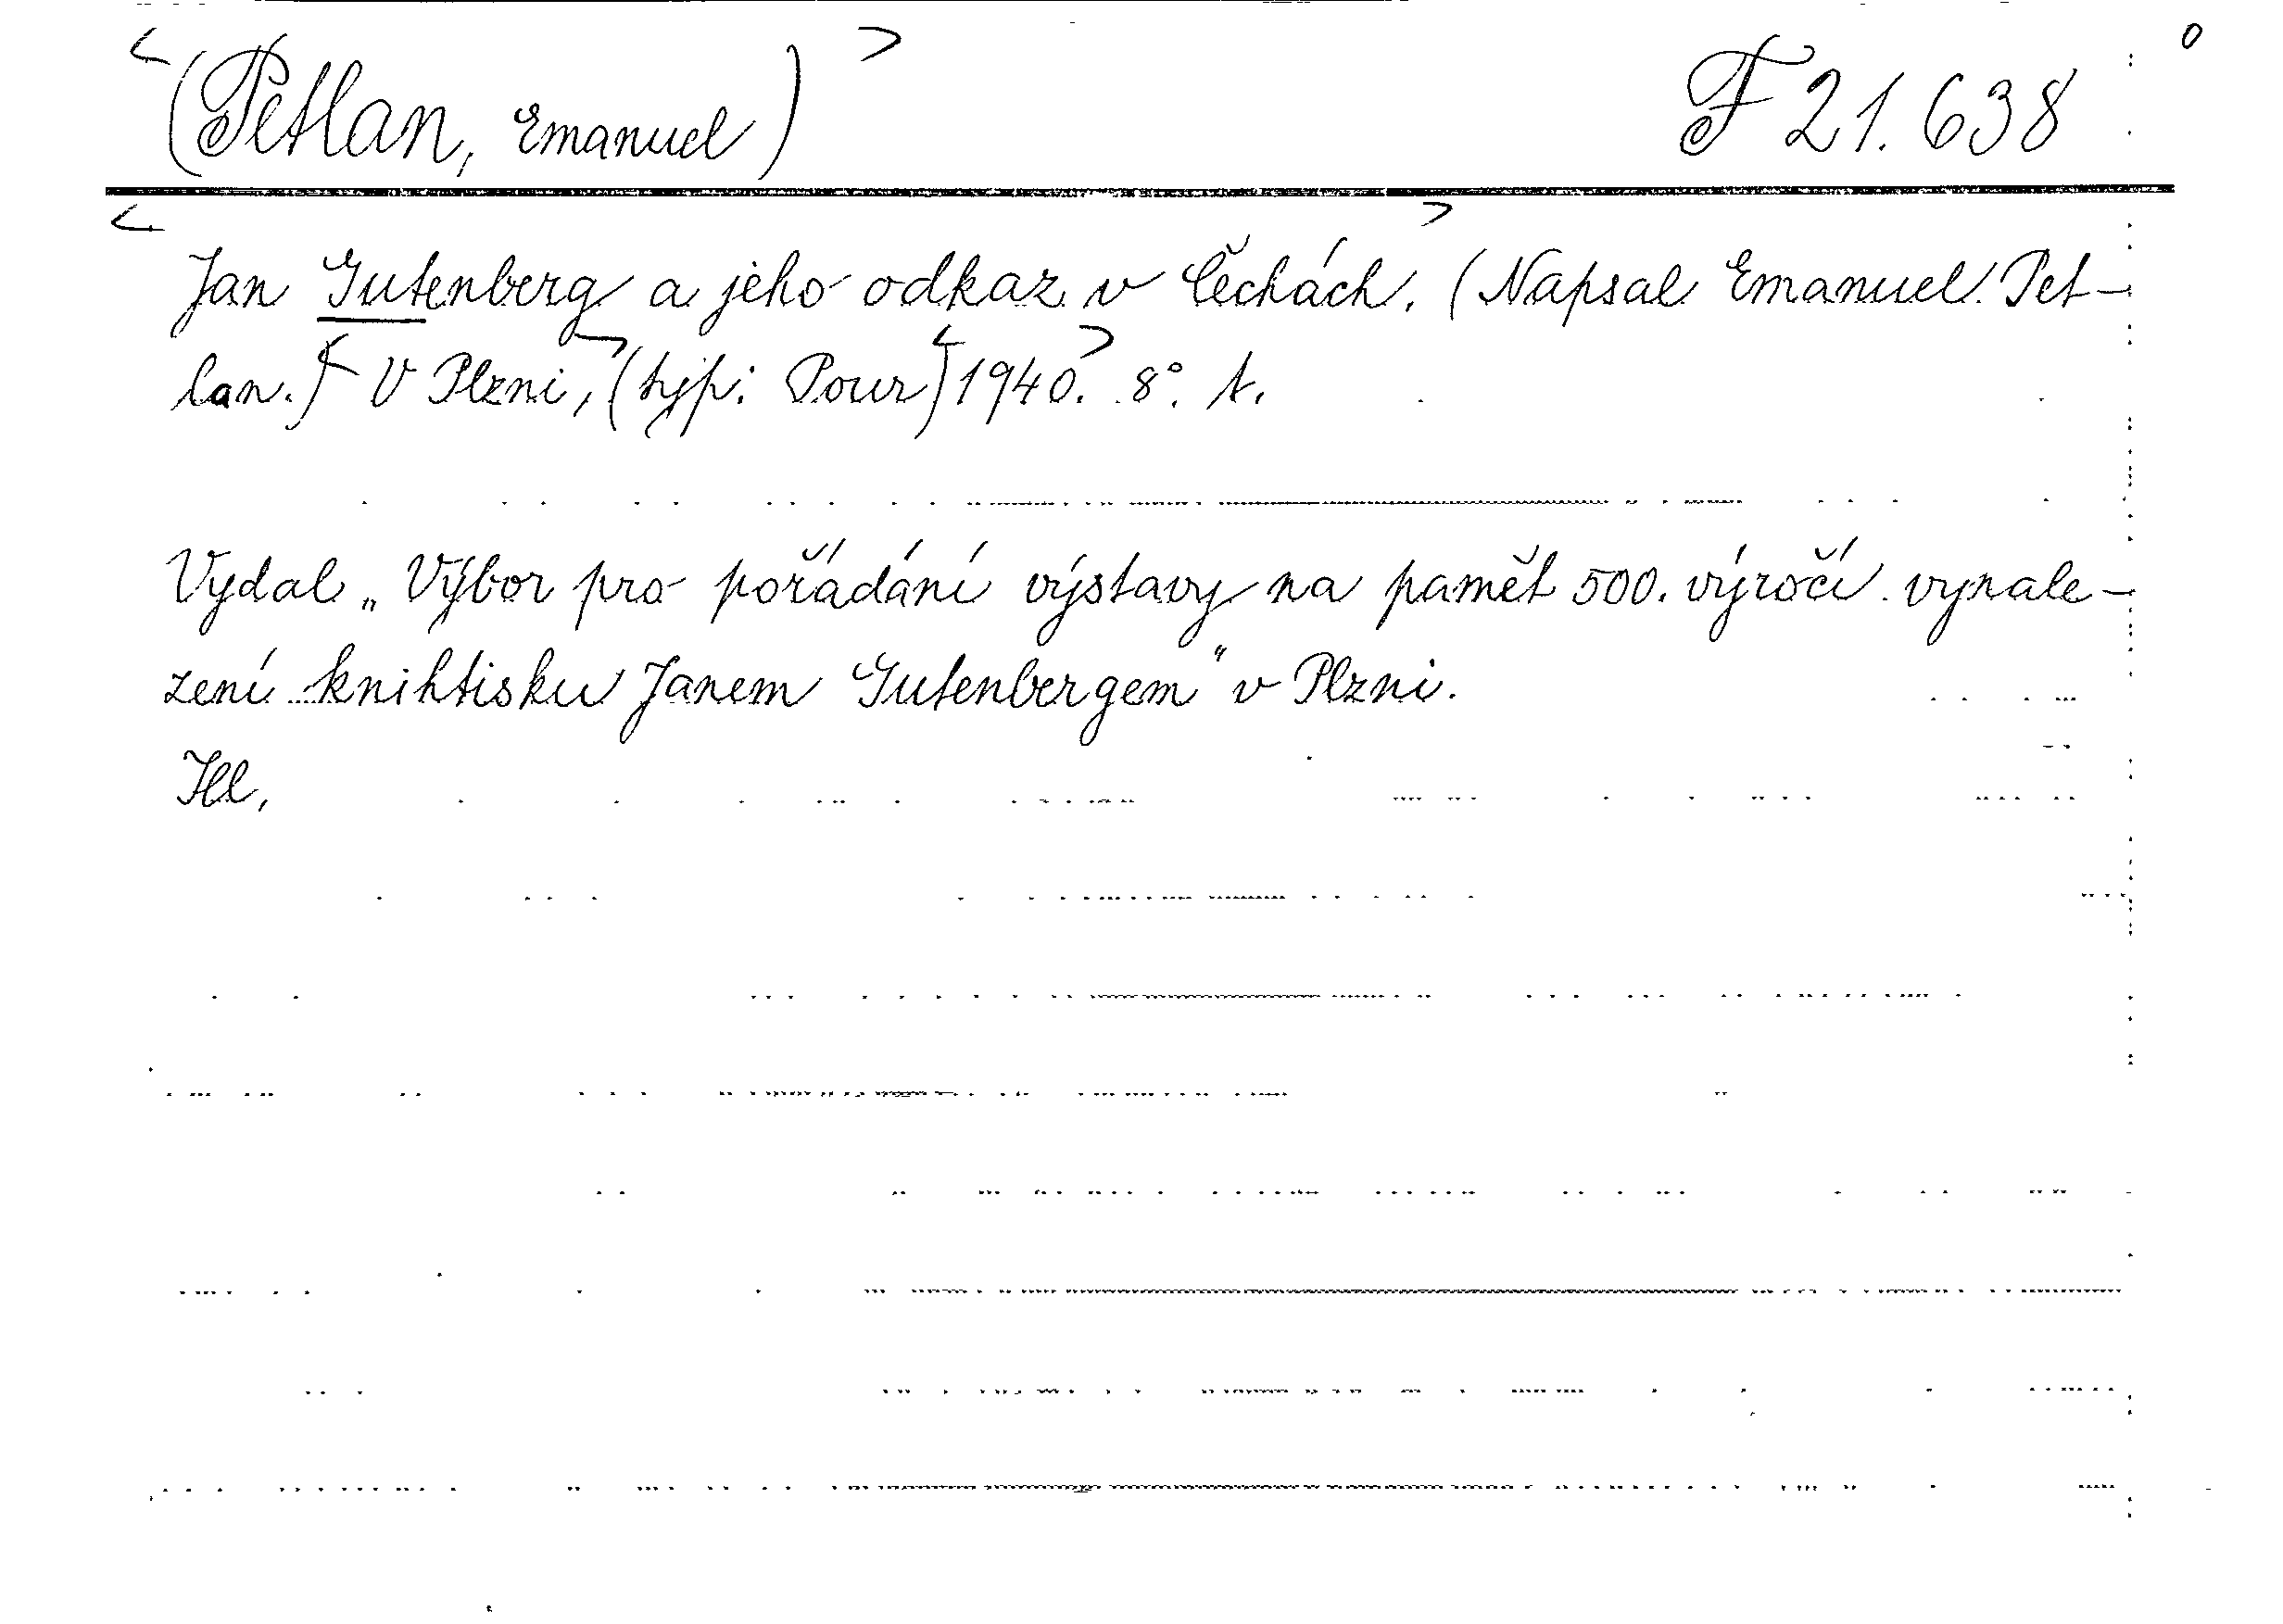 (Petlan, Emanuel) F 21.638
Jan Gutenberg a jeho odkaz v Čechách. (Napsal Emanuel Pet-
lan.) V Plzni, (typ: Pour) 1940. 8°. t.
Vydal „Výbor pro pořádání výstavy na paměť 500. výročí vynale-
zení knihtisku Janem Gutenbergem“ v Plzni.
Ill,